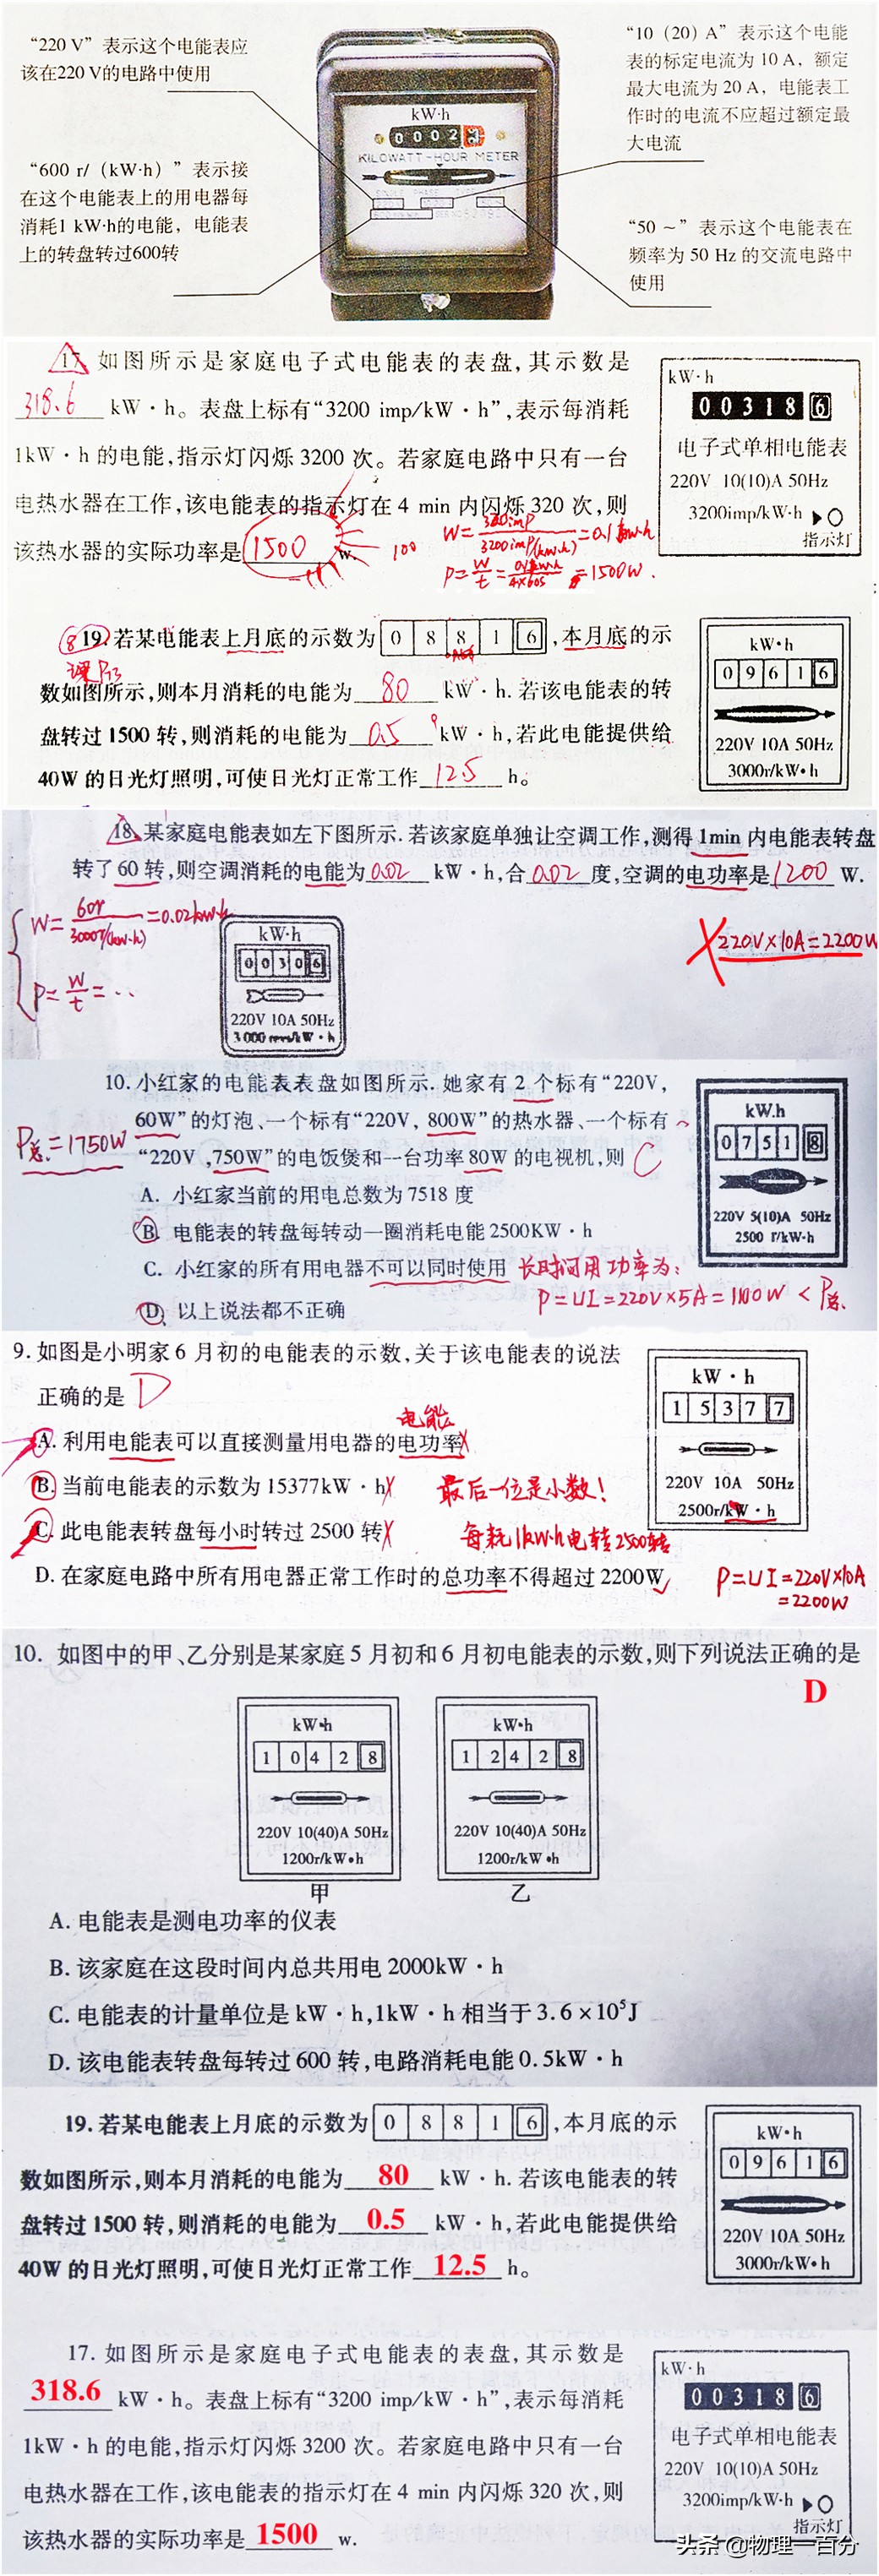 “220 V”表示这个电能表应
该在220 V的电路中使用
“10（20）A”表示这个电能
表的标定电流为 10 A，额定
最大电流为 20 A，电能表工
作时的电流不应超过额定最
大电流
“600 r/（kW·h）”表示接
在这个电能表上的用电器每
消耗1 kW·h的电能，电能表
上的转盘转过600转
“50 ~”表示这个电能表在
频率为 50 Hz 的交流电路中
使用
kW·h
0 0 0 2
KILOWATT-HOUR METER
17. 如图所示是家庭电子式电能表的表盘,其示数是
318.6 kW·h。表盘上标有“3200 imp/kW·h”,表示每消耗
1kW·h 的电能,指示灯闪烁 3200 次。若家庭电路中只有一台
电热水器在工作,该电能表的指示灯在 4 min 内闪烁 320 次,则
该热水器的实际功率是 1500 w.
100
W=320imp/3200imp/(kw·h)=0.1kw·h
P=W/t=0.1kw·h/4×60s=1500W.
kW·h
0 0 3 1 8 6
电子式单相电能表
220V 10(10)A 50Hz
3200imp/kW·h
指示灯
8 19. 若某电能表上月底的示数为 0 8 8 1 6 ,本月底的示
数如图所示,则本月消耗的电能为 80 kW·h. 若该电能表的转
盘转过 1500 转,则消耗的电能为 0.5 kW·h,若此电能提供给
40W 的日光灯照明,可使日光灯正常工作 12.5 h。
kW·h
0 9 6 1 6
220V 10A 50Hz
3000r/kW·h
18. 某家庭电能表如左下图所示. 若该家庭单独让空调工作,测得 1min 内电能表转盘
转了 60 转,则空调消耗的电能为 0.02 kW·h,合 0.02 度,空调的电功率是 1200 W.
W=60r/3000r/(kw·h)=0.02kw·h
P=W/t=…
220V×10A=2200W
kW·h
0 0 3 0 6
220V 10A 50Hz
3 000 revs/kW·h
10. 小红家的电能表表盘如图所示. 她家有 2 个标有“220V,
60W”的灯泡、一个标有“220V, 800W”的热水器、一个标有
“220V ,750W”的电饭煲和一台功率 80W 的电视机,则 C
P总=1750W
A. 小红家当前的用电总数为 7518 度
B. 电能表的转盘每转动一圈消耗电能 2500KW·h
C. 小红家的所有用电器不可以同时使用 长时间用功率为:
P=UI=220V×5A=1100W<P总.
D. 以上说法都不正确
kW.h
0 7 5 1 8
220V 5(10)A 50Hz
2500 r/kW·h
9. 如图是小明家 6 月初的电能表的示数,关于该电能表的说法
正确的是 D
电能
A. 利用电能表可以直接测量用电器的电功率
B. 当前电能表的示数为 15377kW·h 最后一位是小数!
C. 此电能表转盘每小时转过 2500 转 每耗1kw·h电转2500转
D. 在家庭电路中所有用电器正常工作时的总功率不得超过 2200W
P=UI=220V×10A
=2200W
kW·h
1 5 3 7 7
220V 10A 50Hz
2500r/kW·h
10. 如图中的甲、乙分别是某家庭 5 月初和 6 月初电能表的示数,则下列说法正确的是
D
kW·h
1 0 4 2 8
220V 10(40)A 50Hz
1200r/kW·h
甲
kW·h
1 2 4 2 8
220V 10(40)A 50Hz
1200r/kW·h
乙
A. 电能表是测电功率的仪表
B. 该家庭在这段时间内总共用电 2000kW·h
C. 电能表的计量单位是 kW·h,1kW·h 相当于 3.6×10⁵J
D. 该电能表转盘每转过 600 转,电路消耗电能 0.5kW·h
19. 若某电能表上月底的示数为 0 8 8 1 6 ,本月底的示
数如图所示,则本月消耗的电能为 80 kW·h. 若该电能表的转
盘转过 1500 转,则消耗的电能为 0.5 kW·h,若此电能提供给
40W 的日光灯照明,可使日光灯正常工作 12.5 h。
kW·h
0 9 6 1 6
220V 10A 50Hz
3000r/kW·h
17. 如图所示是家庭电子式电能表的表盘,其示数是
318.6 kW·h。表盘上标有“3200 imp/kW·h”,表示每消耗
1kW·h 的电能,指示灯闪烁 3200 次。若家庭电路中只有一台
电热水器在工作,该电能表的指示灯在 4 min 内闪烁 320 次,则
该热水器的实际功率是 1500 w.
kW·h
0 0 3 1 8 6
电子式单相电能表
220V 10(10)A 50Hz
3200imp/kW·h
指示灯
头条 @物理一百分